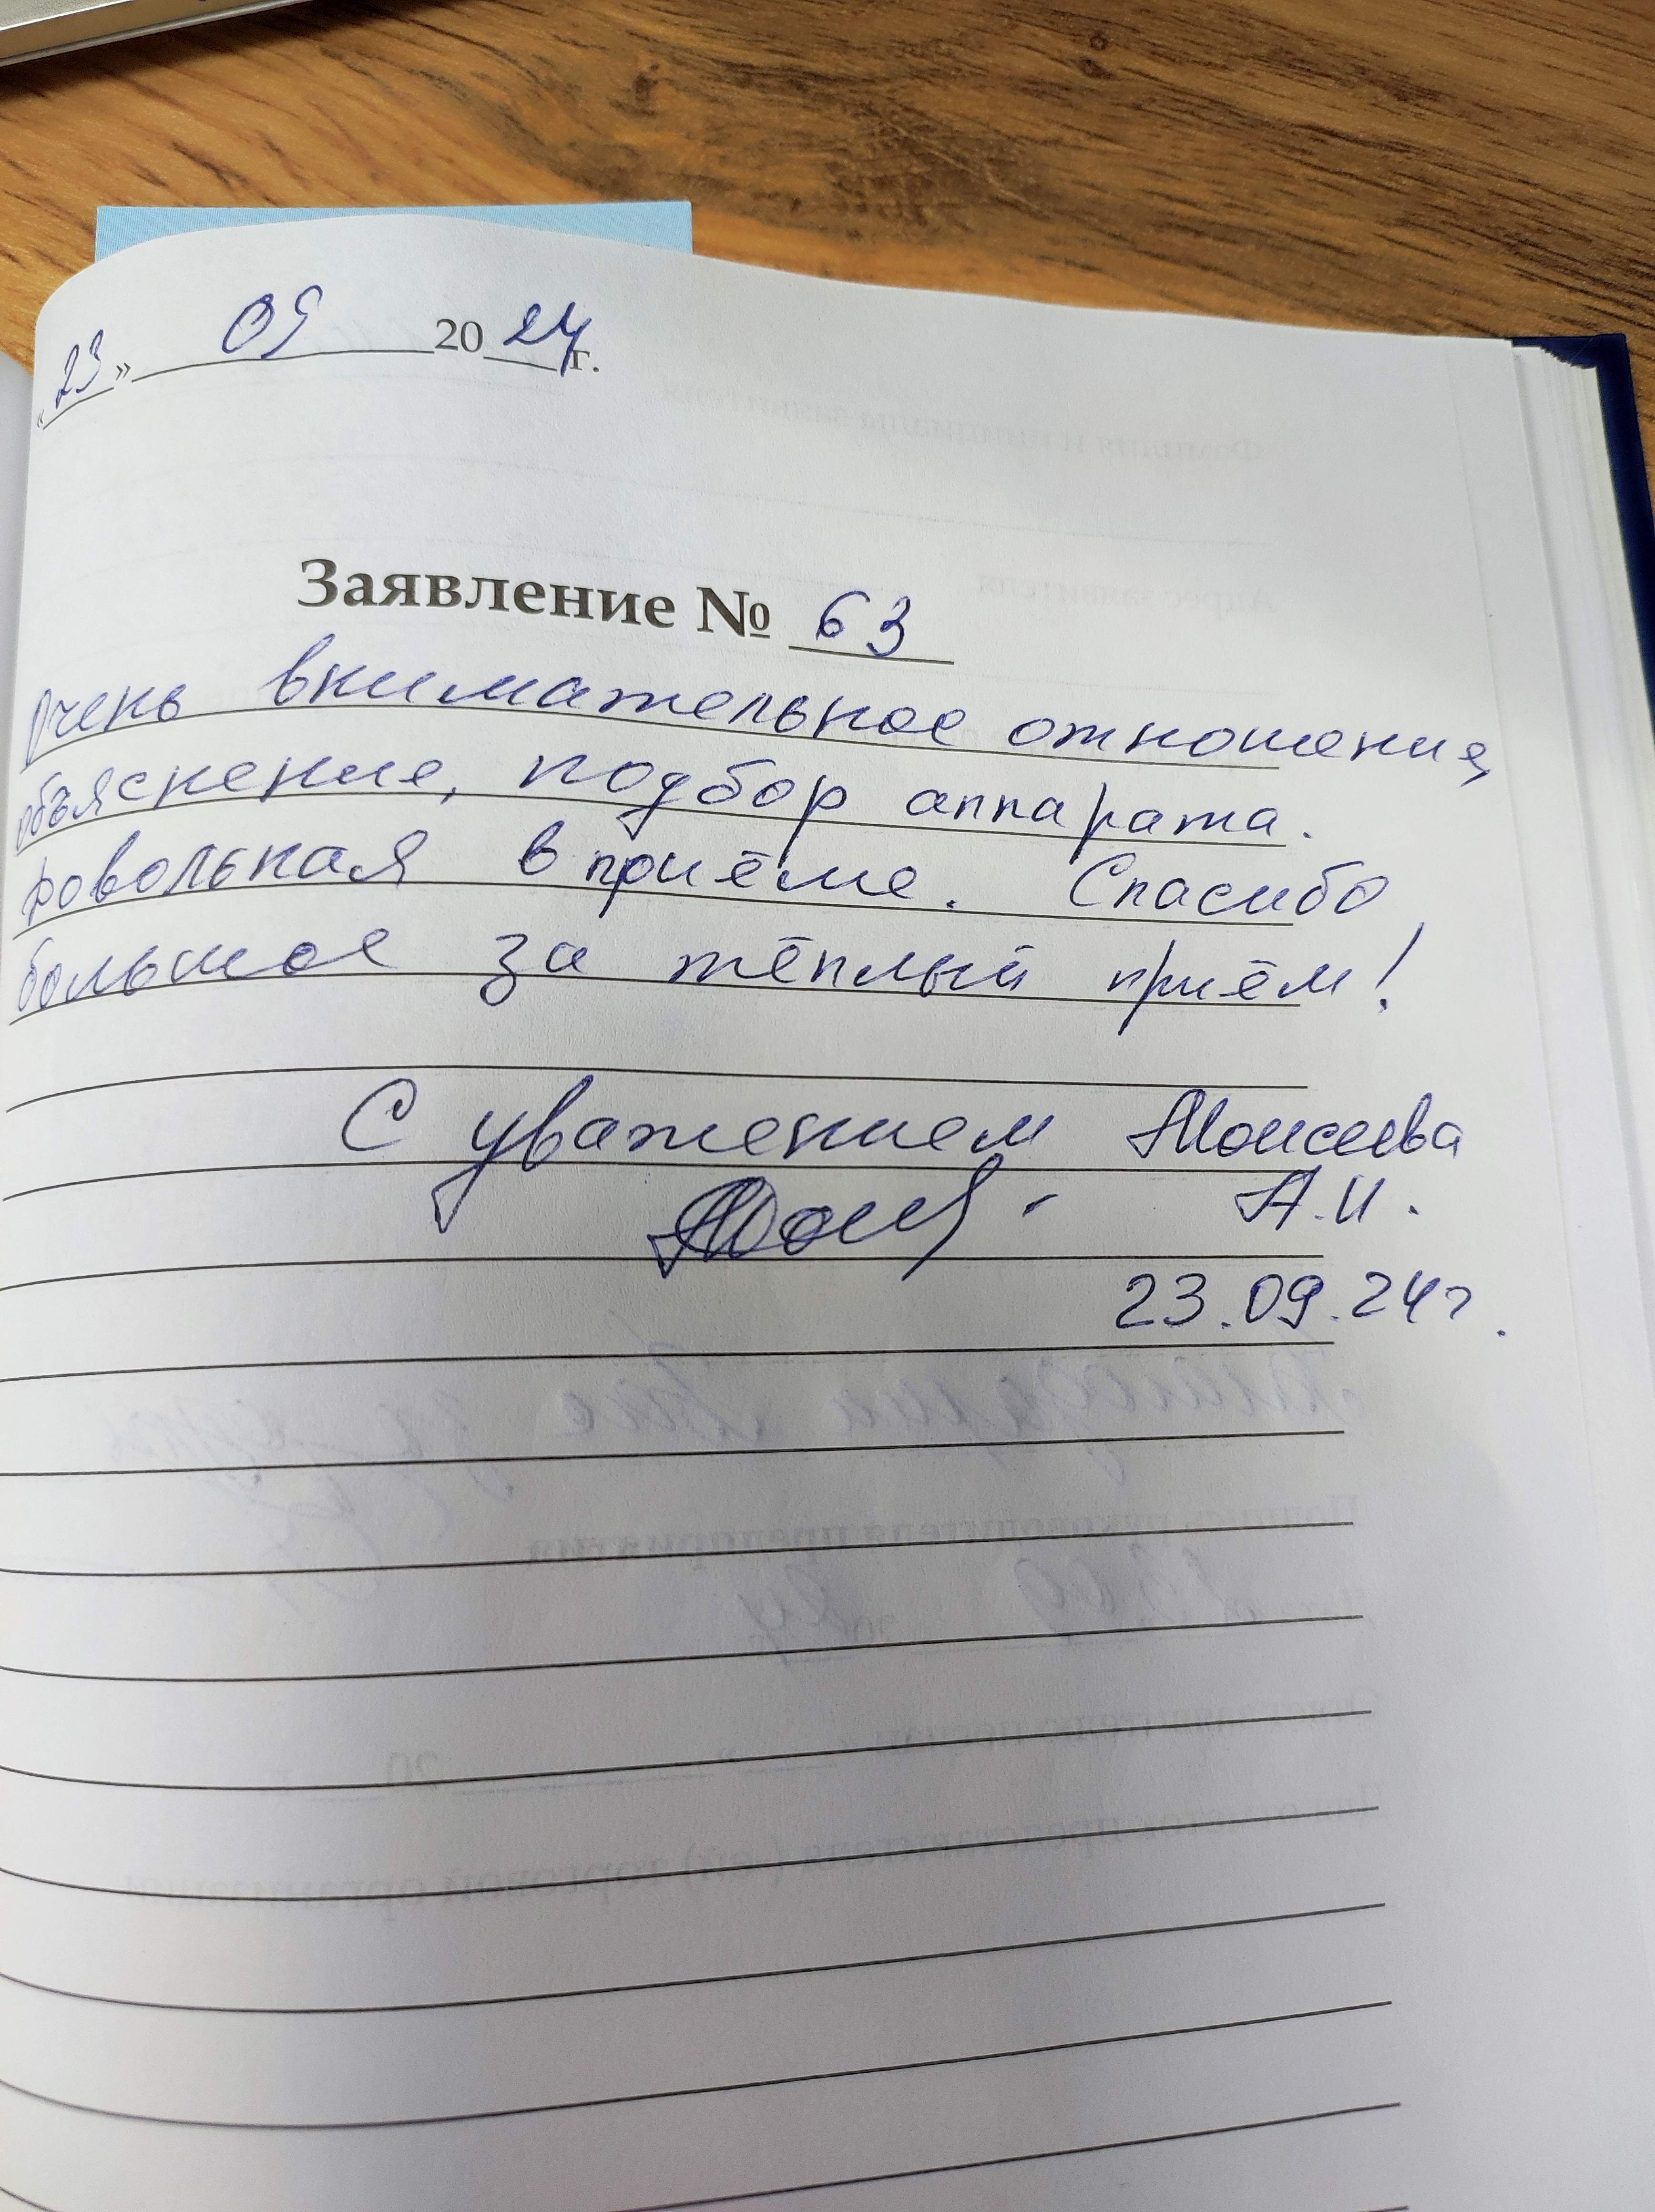 «23» 09 2024 г.
Заявление № 63
Очень внимательное отношение,
объяснение, подбор аппарата.
Довольная в приёме. Спасибо
большое за тёплый приём!
С уважением Моисеева
А.И.
23.09.24г.